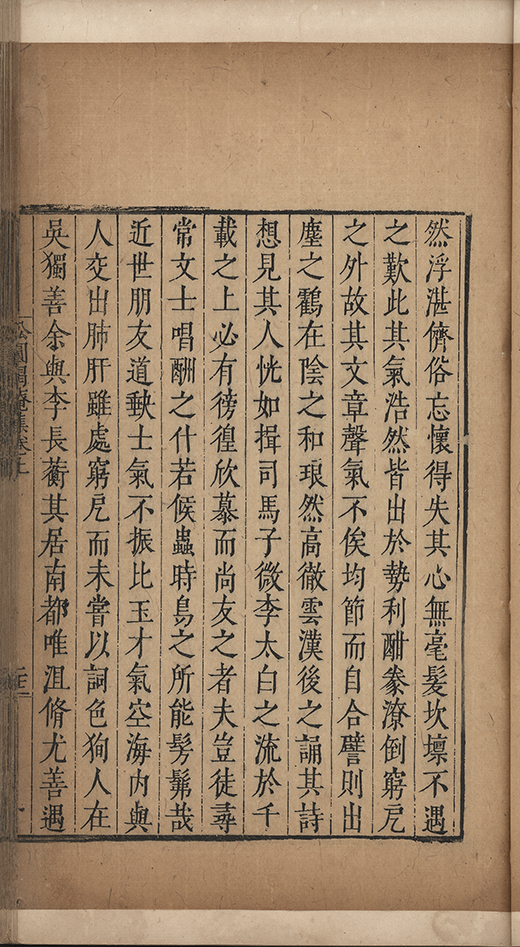 然浮湛儕俗忘懷得失其心無毫髮坎壈不遇
之歎此其氣浩然皆出於勢利酣豢潦倒窮戹
之外故其文章聲氣不俟均節而自合譬則出
塵之鸖在陰之和琅然高徹雲漢後之誦其詩
想見其人恍如揖司馬子微李太白之流於千
載之上必有徬徨欣慕而尚友之者夫豈徒尋
常文士唱酬之什若候蟲時鳥之所能髣髴哉
近世朋友道缺士氣不振比玉才氣空海內與
人交出肺肝雖處窮戹而未嘗以詞色狥人在
吳獨善余與李長蘅其居南都唯沮脩尤善遇
松圓偈庵集卷上